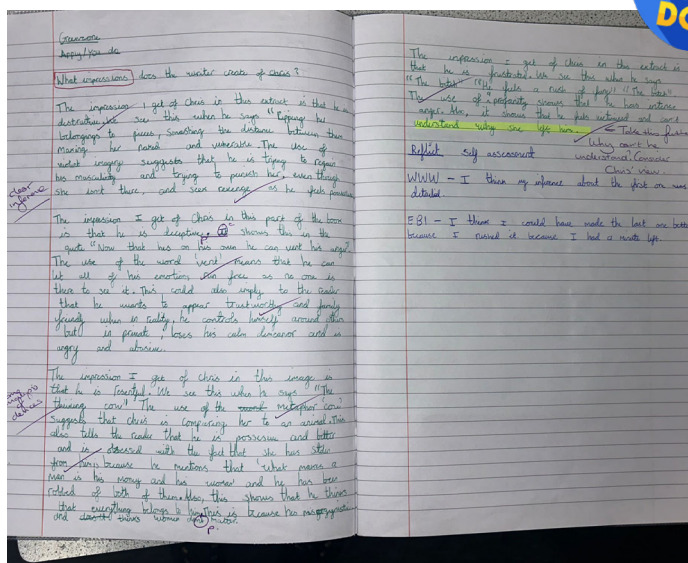 Apply/You do
What impressions does the writer create of Chris?
The impression I get of Chris in this extract is that he is
destructive. We see this when he says "Ripping her
belongings to pieces, smashing the distance between them
Making her naked and vulnerable. The use of
violent imagery suggests that he is trying to regain
his masculinity and trying to punish her, even though
she isn't there, and seek revenge as he feels
clear
inference
The impression I get of Chris in this part of the book
is that he is deceptive. It shows this in the
quote "Now that hes on his own he can vent his anger".
The use of the word 'vent' means that he can
let all of his emotions run free as no one is
there to see it. This could also imply to the reader
that he wants to appear trustworthy and family
friendly when in reality, he controls himself around others
but in private, loses his calm demeanor and is
angry and abusive.
The impression I get of Chris in this image is
that he is resentful. We see this when he says "The
thieving cow" The use of the word metaphor 'cow'
suggests that chris is comparing her to an animal. This
also tells the reader that he is possessive and bitter
and is obsessed with the fact that she has stolen
from him because he mentions that "what makes a
man is his money and his woman" and he has been
robbed of both of them. Also, this shows that he thinks
that everything belongs to him. This is because hes
and doesn't thinks women dont matter.
P.
The impression I get of Chris in this extract is
that he is frustrated. We see this when he says
"The bitch" "He feels a rush of fury" "The bitch"
The use of profanity shows that he has intense
anger. Also, it shows that he feels betrayed and can't
understand why she left him.
← Take this further
Why can't he
understand? Consider
Chris' view.
Reflect Self assessment
WWW - I think my inference about the first one was
detailed.
EBI - I think I could have made the last one better
because I rushed it because I had a minute left.